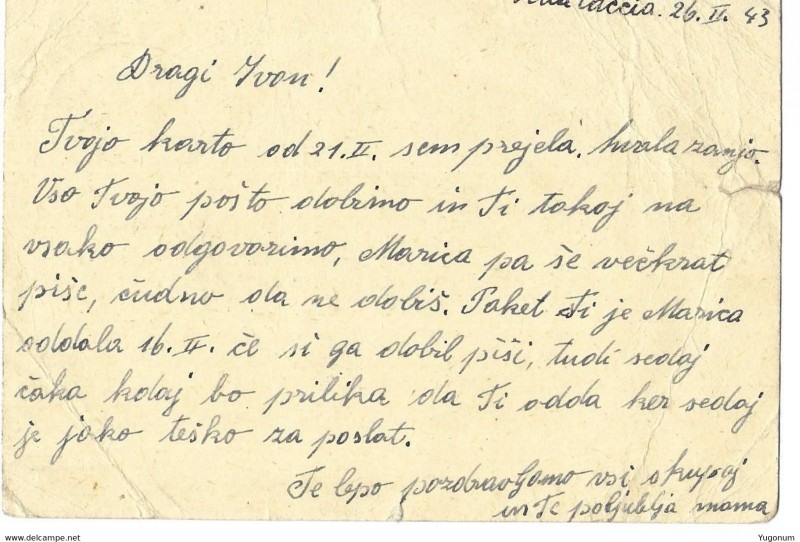 26. II. 43
Dragi Ivan!
Tvojo karto od 21. II. sem prejela, hvala zanjo.
Vso Tvojo pošto dobimo in Ti takoj na
vsako odgovorimo, Marica pa še večkrat
piše, čudno da ne dobiš. Paket Ti je Marica
oddala 16. II. če si ga dobil piši, tudi sedaj
čaka kdaj bo prilika da Ti odda ker sedaj
je jako teško za poslat.
Te lepo pozdravljamo vsi skupaj
in Te poljublja mama
Yugonum